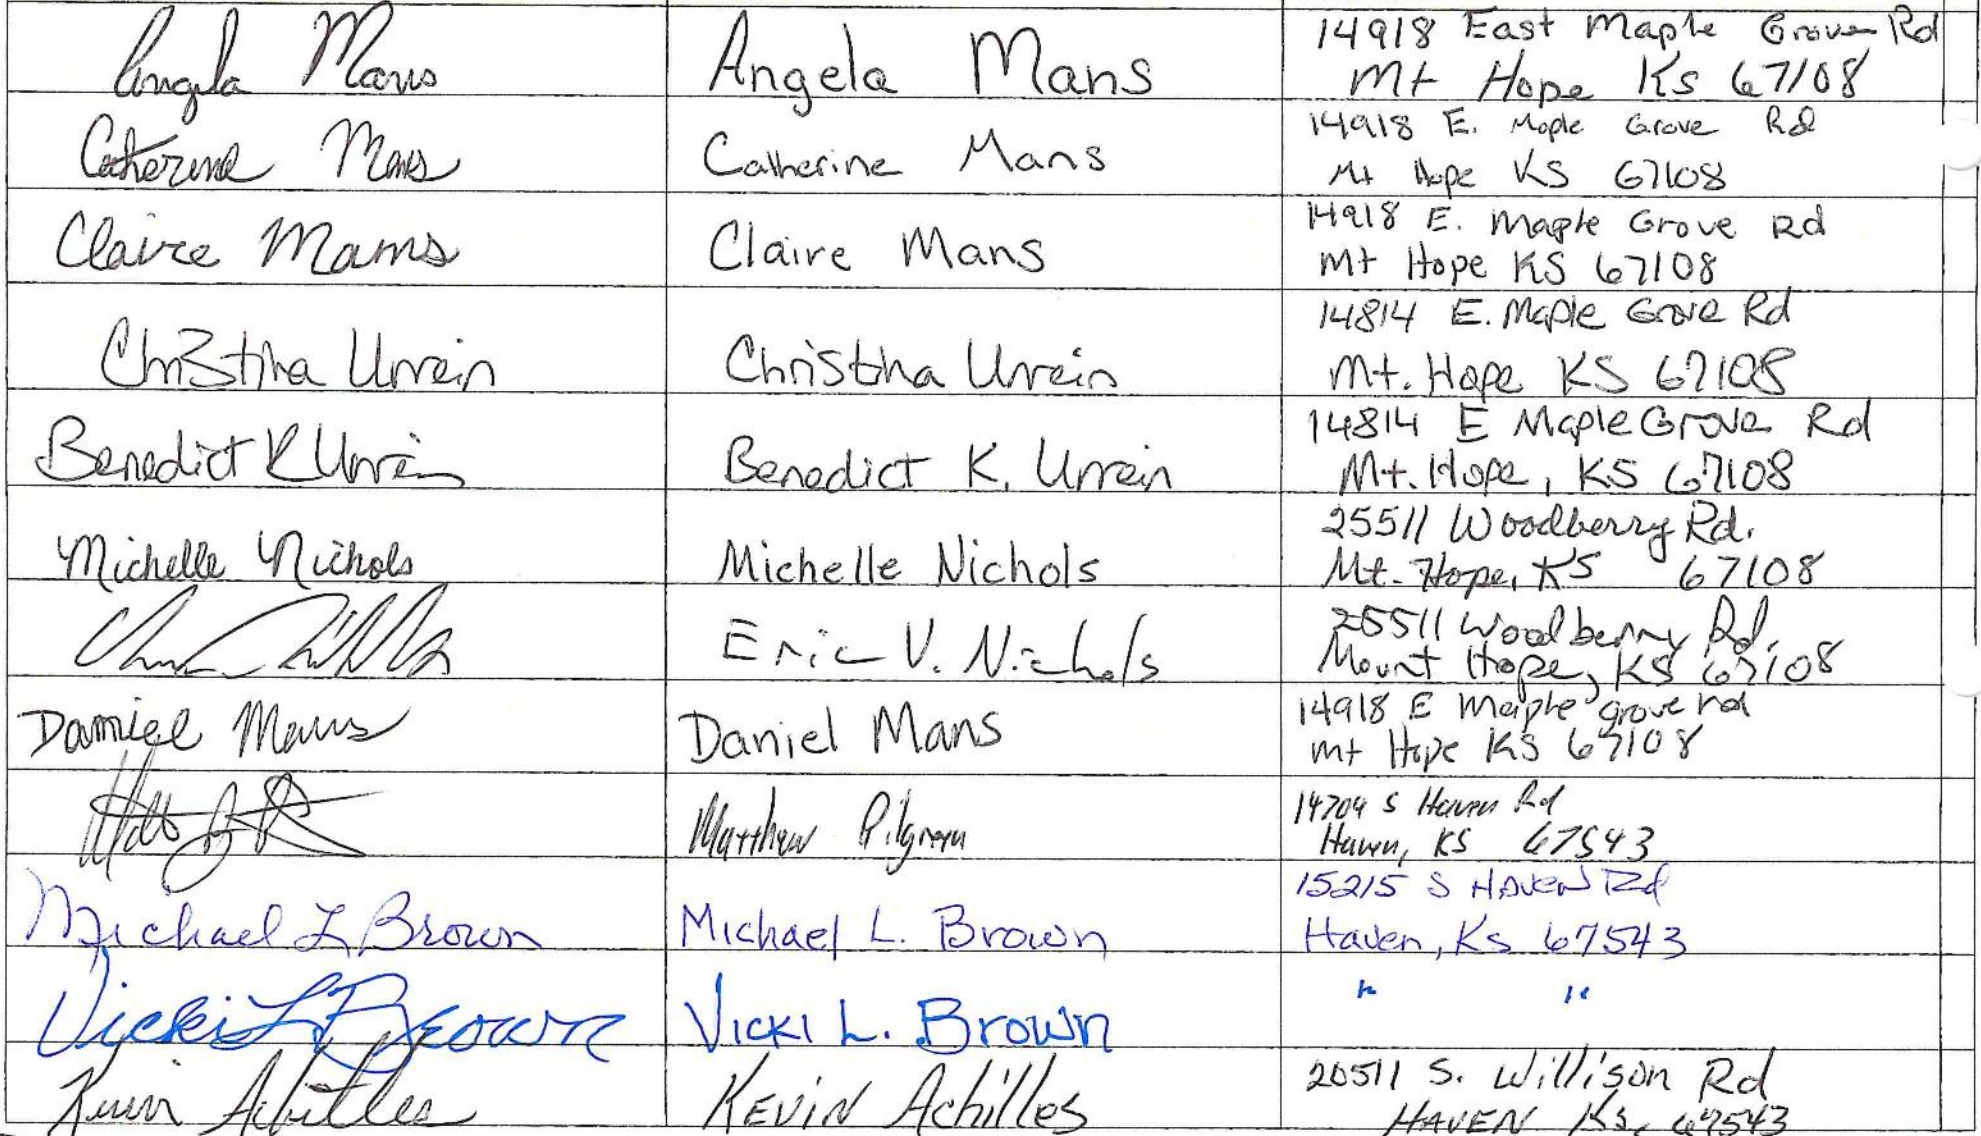 Angela Mans Angela Mans 14918 East Maple Grove Rd
Mt Hope Ks 67108
Catherine Mans Catherine Mans 14918 E. Maple Grove Rd
Mt Hope KS 67108
Claire Mans Claire Mans 14918 E. Maple Grove Rd
Mt Hope KS 67108
Christina Urrein Christina Urrein 14814 E. Maple Grove Rd
Mt. Hope KS 67108
Benedict K Urrein Benedict K. Urrein 14814 E Maple Grove Rd
Mt. Hope, KS 67108
Michelle Nichols Michelle Nichols 25511 Woodberry Rd.
Mt. Hope, KS 67108
Eric V. Nichols 25511 Woodberry Rd.
Mount Hope, KS 67108
Daniel Mans Daniel Mans 14918 E Maple grove rd
mt Hope KS 67108
Matthew Pilgrem 14704 S Haven Rd
Haven, KS 67543
Michael L Brown Michael L. Brown 15215 S HAVEN Rd
Haven, Ks 67543
Vicki L Brown Vicki L. Brown " "
Kevin Achilles KEVIN Achilles 20511 S. Willison Rd
HAVEN Ks, 67543